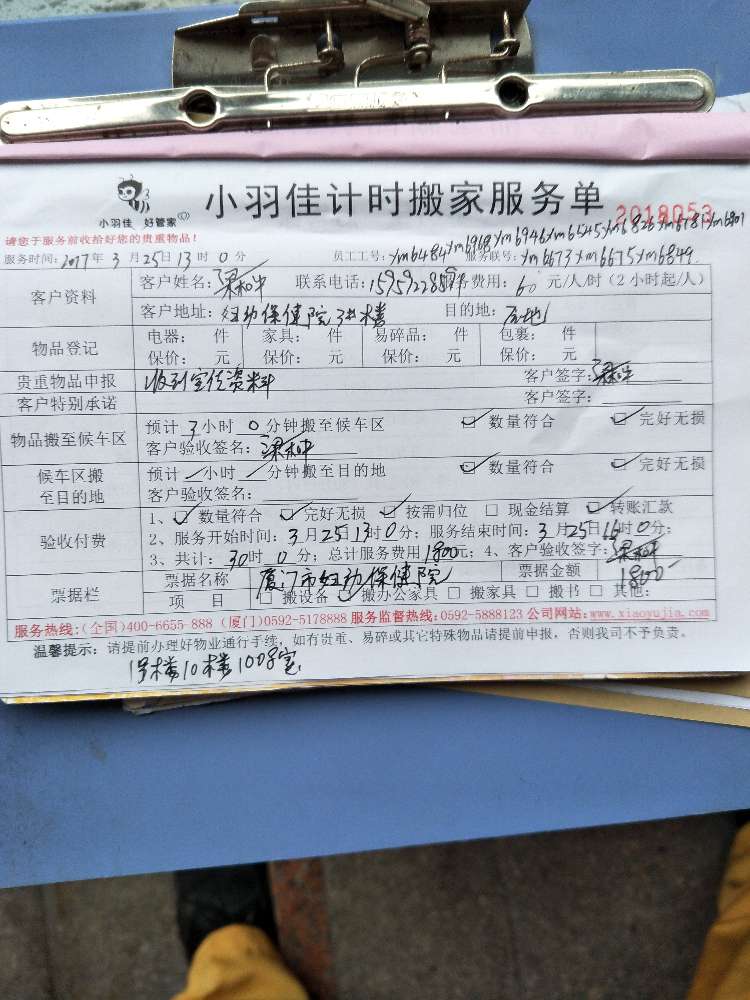 小羽佳计时搬家服务单
小羽佳 好管家
2018053
请您于服务前收拾好您的贵重物品!
ym6484 ym6968 ym6946 ym6545 ym6826 ym6781 ym6801
服务时间:2017年3月25日13时0分 员工工号: 服务联号: ym6673 ym6675 ym6849
客户资料
客户姓名: 联系电话: 费用:60元/人/时(2小时起/人)
客户地址:妇幼保健院3#楼 目的地:
物品登记
电器: 件 家具: 件 易碎品: 件 包裹: 件
保价: 元 保价: 元 保价: 元 保价: 元
贵重物品申报 收到宣传资料 客户签字:
客户特别承诺 客户签字:
物品搬至候车区
预计3小时0分钟搬至候车区 数量符合 完好无损
客户验收签名:
候车区搬至目的地
预计 小时 分钟搬至目的地 数量符合 完好无损
客户验收签名:
验收付费
1、数量符合 完好无损 按需归位 现金结算 转账汇款
2、服务开始时间:3月25日13时0分;服务结束时间:3月25日16时0分;
3、共计:30时0分;总计服务费用1800元;4、客户验收签字:
票据栏
票据名称 厦门市妇幼保健院 票据金额 1800-
项 目 搬设备 搬办公家具 搬家具 搬书 其他:
服务热线:(全国)400-6655-888 (厦门)0592-5178888 服务监督热线:0592-5888123 公司网站:www.xiaoyujia.com
温馨提示:请提前办理好物业通行手续,如有贵重、易碎或其它特殊物品请提前申报,否则我司不予负责。
1号楼10楼1008室